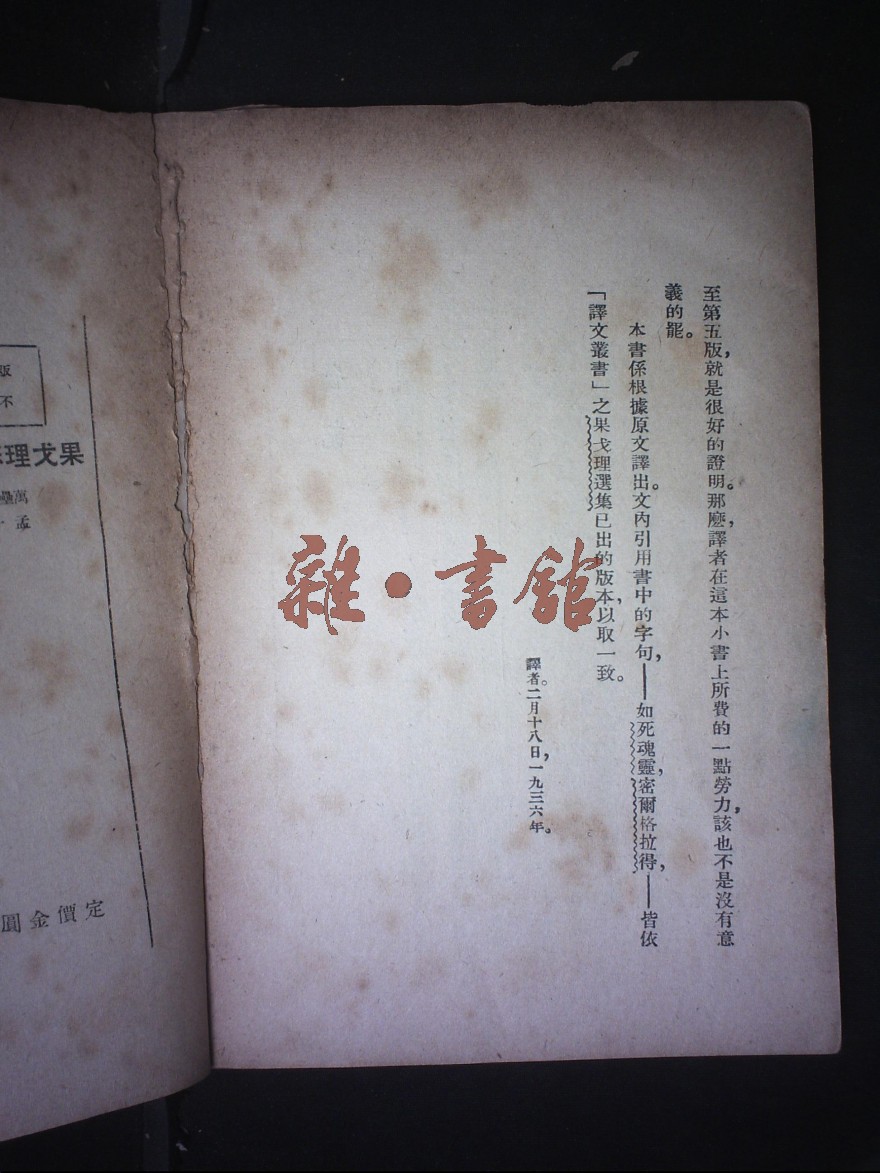 至第五版，就是很好的證明。那麼，譯者在這本小書上所費的一點勞力，該也不是沒有意
義的罷。
本書係根據原文譯出。文內引用書中的字句，——如死魂靈，密爾格拉得，——皆依
「譯文叢書」之果戈理選集已出的版本，以取一致。
譯者。二月十八日，一九三六年。
雜·書館
版
不
果戈理
萬壘
孟十
定價金圓